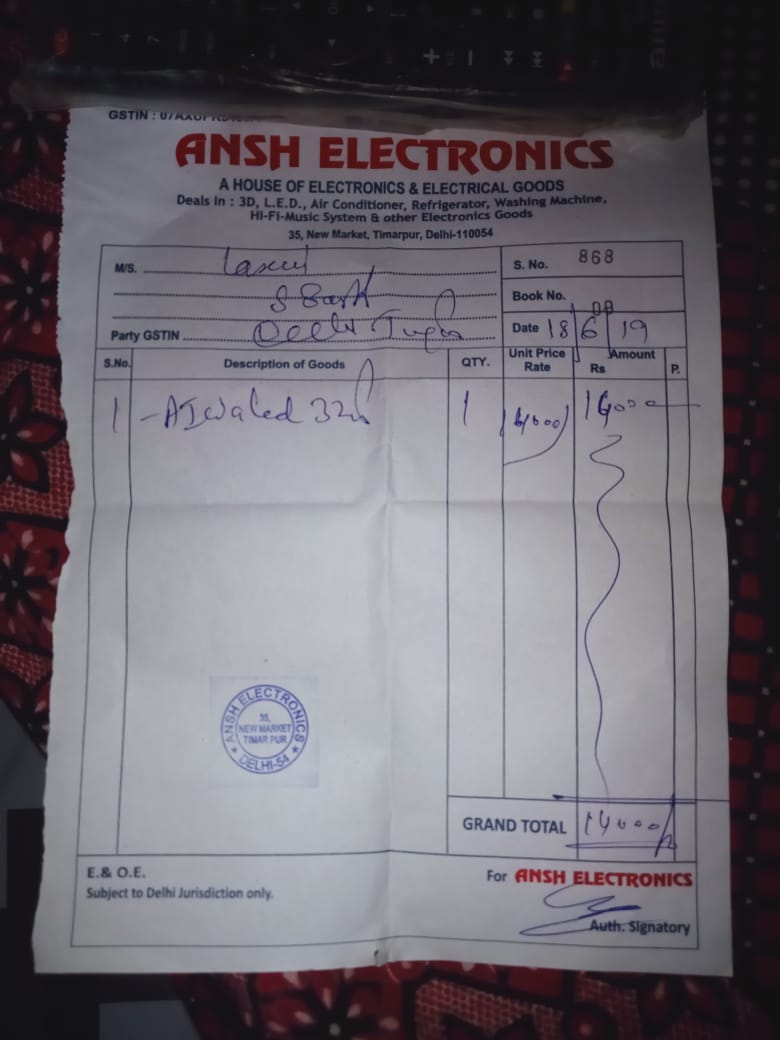 GSTIN : 07AXUP
ANSH ELECTRONICS
A HOUSE OF ELECTRONICS & ELECTRICAL GOODS
Deals in : 3D, L.E.D., Air Conditioner, Refrigerator, Washing Machine,
Hi-Fi-Music System & other Electronics Goods
35, New Market, Timarpur, Delhi-110054
M/S.
S. No. 868
Book No. 08
Party GSTIN
Date 18/6/19
S.No. Description of Goods QTY. Unit Price Rate Amount Rs P.
1 1 14000 14000
ANSH ELECTRONICS
35,
NEW MARKET
TIMAR PUR
DELHI-54
GRAND TOTAL 14000/-
E.& O.E.
Subject to Delhi Jurisdiction only.
For ANSH ELECTRONICS
Auth. Signatory